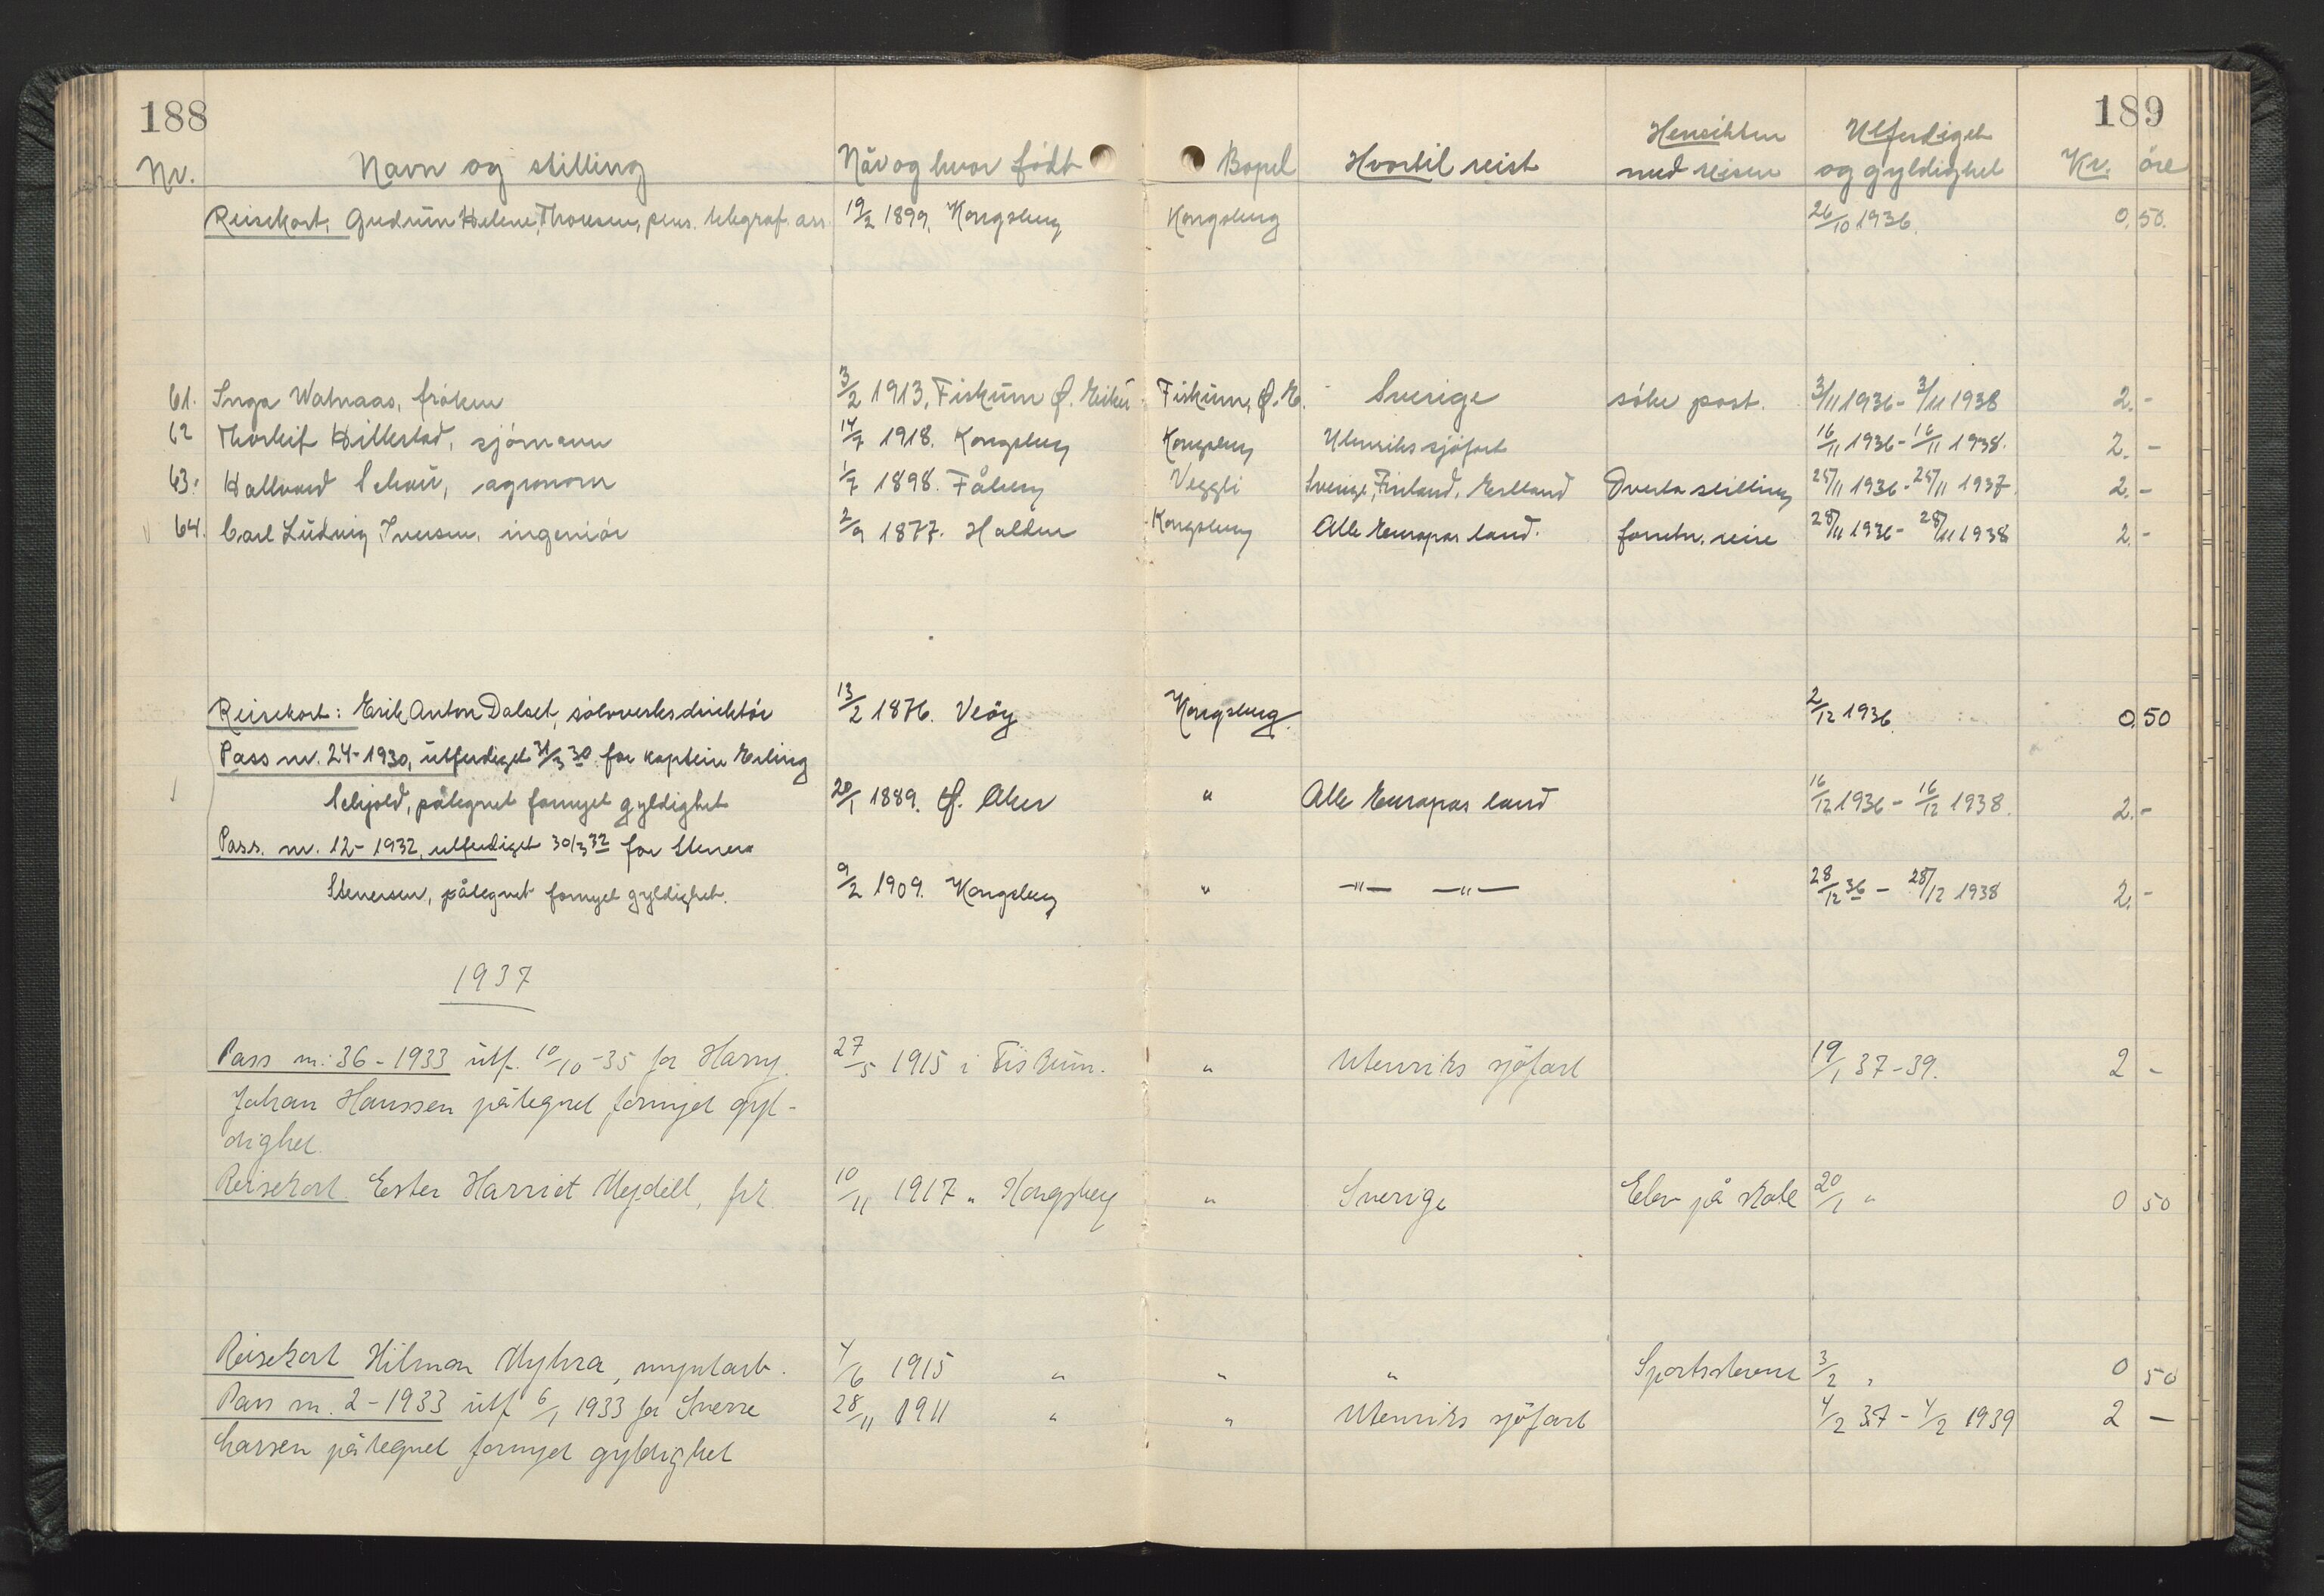 188 189
Nr. Navn og stilling Når og hvor född Bopel Hvortil reist Hensikten med reisen Utferdiget og gyldighet Kr. öre
Reisekort, Gudrun Helene Thoresen, pens. telegraf. ass. 19/2 1899, Kongsberg Kongsberg 26/10 1936. 0,50.
61. Inga Watnaas, fröken 3/2 1913, Fiskum Ø. Eiker Fiskum, Ø. E. Sverige söke post. 3/11 1936 - 3/11 1938 2. -
62 Thorleif Hillestad, sjömann 14/7 1918. Kongsberg Kongsberg Utenriks sjöfart 16/11 1936 - 16/11 1938. 2. -
63. Hallvard Schau, agronom 1/7 1898. Fåberg Veggli Sverige, Finland, Estland Overta stilling 25/11 1936 - 25/11 1937. 2. -
64. Carl Ludvig Iversen, ingeniör 2/9 1877. Halden Kongsberg Alle Europas land. forretn. reise 28/11 1936 - 28/11 1938 2. -
Reisekort: Erik Anton Dalset, sölvverksdirektör 13/2 1876. Veöy Kongsberg. 2/12 1936. 0,50
Pass nr. 24 - 1930, utferdiget 31/3 30 for kaptein Erling
Schjold, påtegnet fornyet gyldighet 20/1 1889. Ø. Aker " Alle Europas land 16/12 1936 - 16/12 1938. 2. -
Pass. nr. 12 - 1932, utferdiget 30/3 32 for Stener
Stenersen, påtegnet fornyet gyldighet. 9/2 1909. Kongsberg " -"- -"- 28/12 36 - 28/12 1938 2. -
1937
Pass nr: 36 - 1933 utf. 10/10 - 35 for Harry 27/5 1915 i Fiskum. " Utenriks sjöfart 19/1 37 - 39. 2 -
Johan Hanssen påtegnet fornyet gyl-
dighet.
Reisekort Ester Harriet Mejdell, frk. 10/11 1917 " Kongsberg " Sverige Elev på skole 20/1 " 0 50
Reisekort Hilman Myhra, myntarb. 4/6 1915 " " " Sportsstevne 3/2 " 0 50
Pass nr. 2 - 1933 utf 6/1 1933 for Sverre 28/11 1911 " " Utenriks sjöfart 4/2 37 - 4/2 1939 2 -
Larsen påtegnet fornyet gyldighet